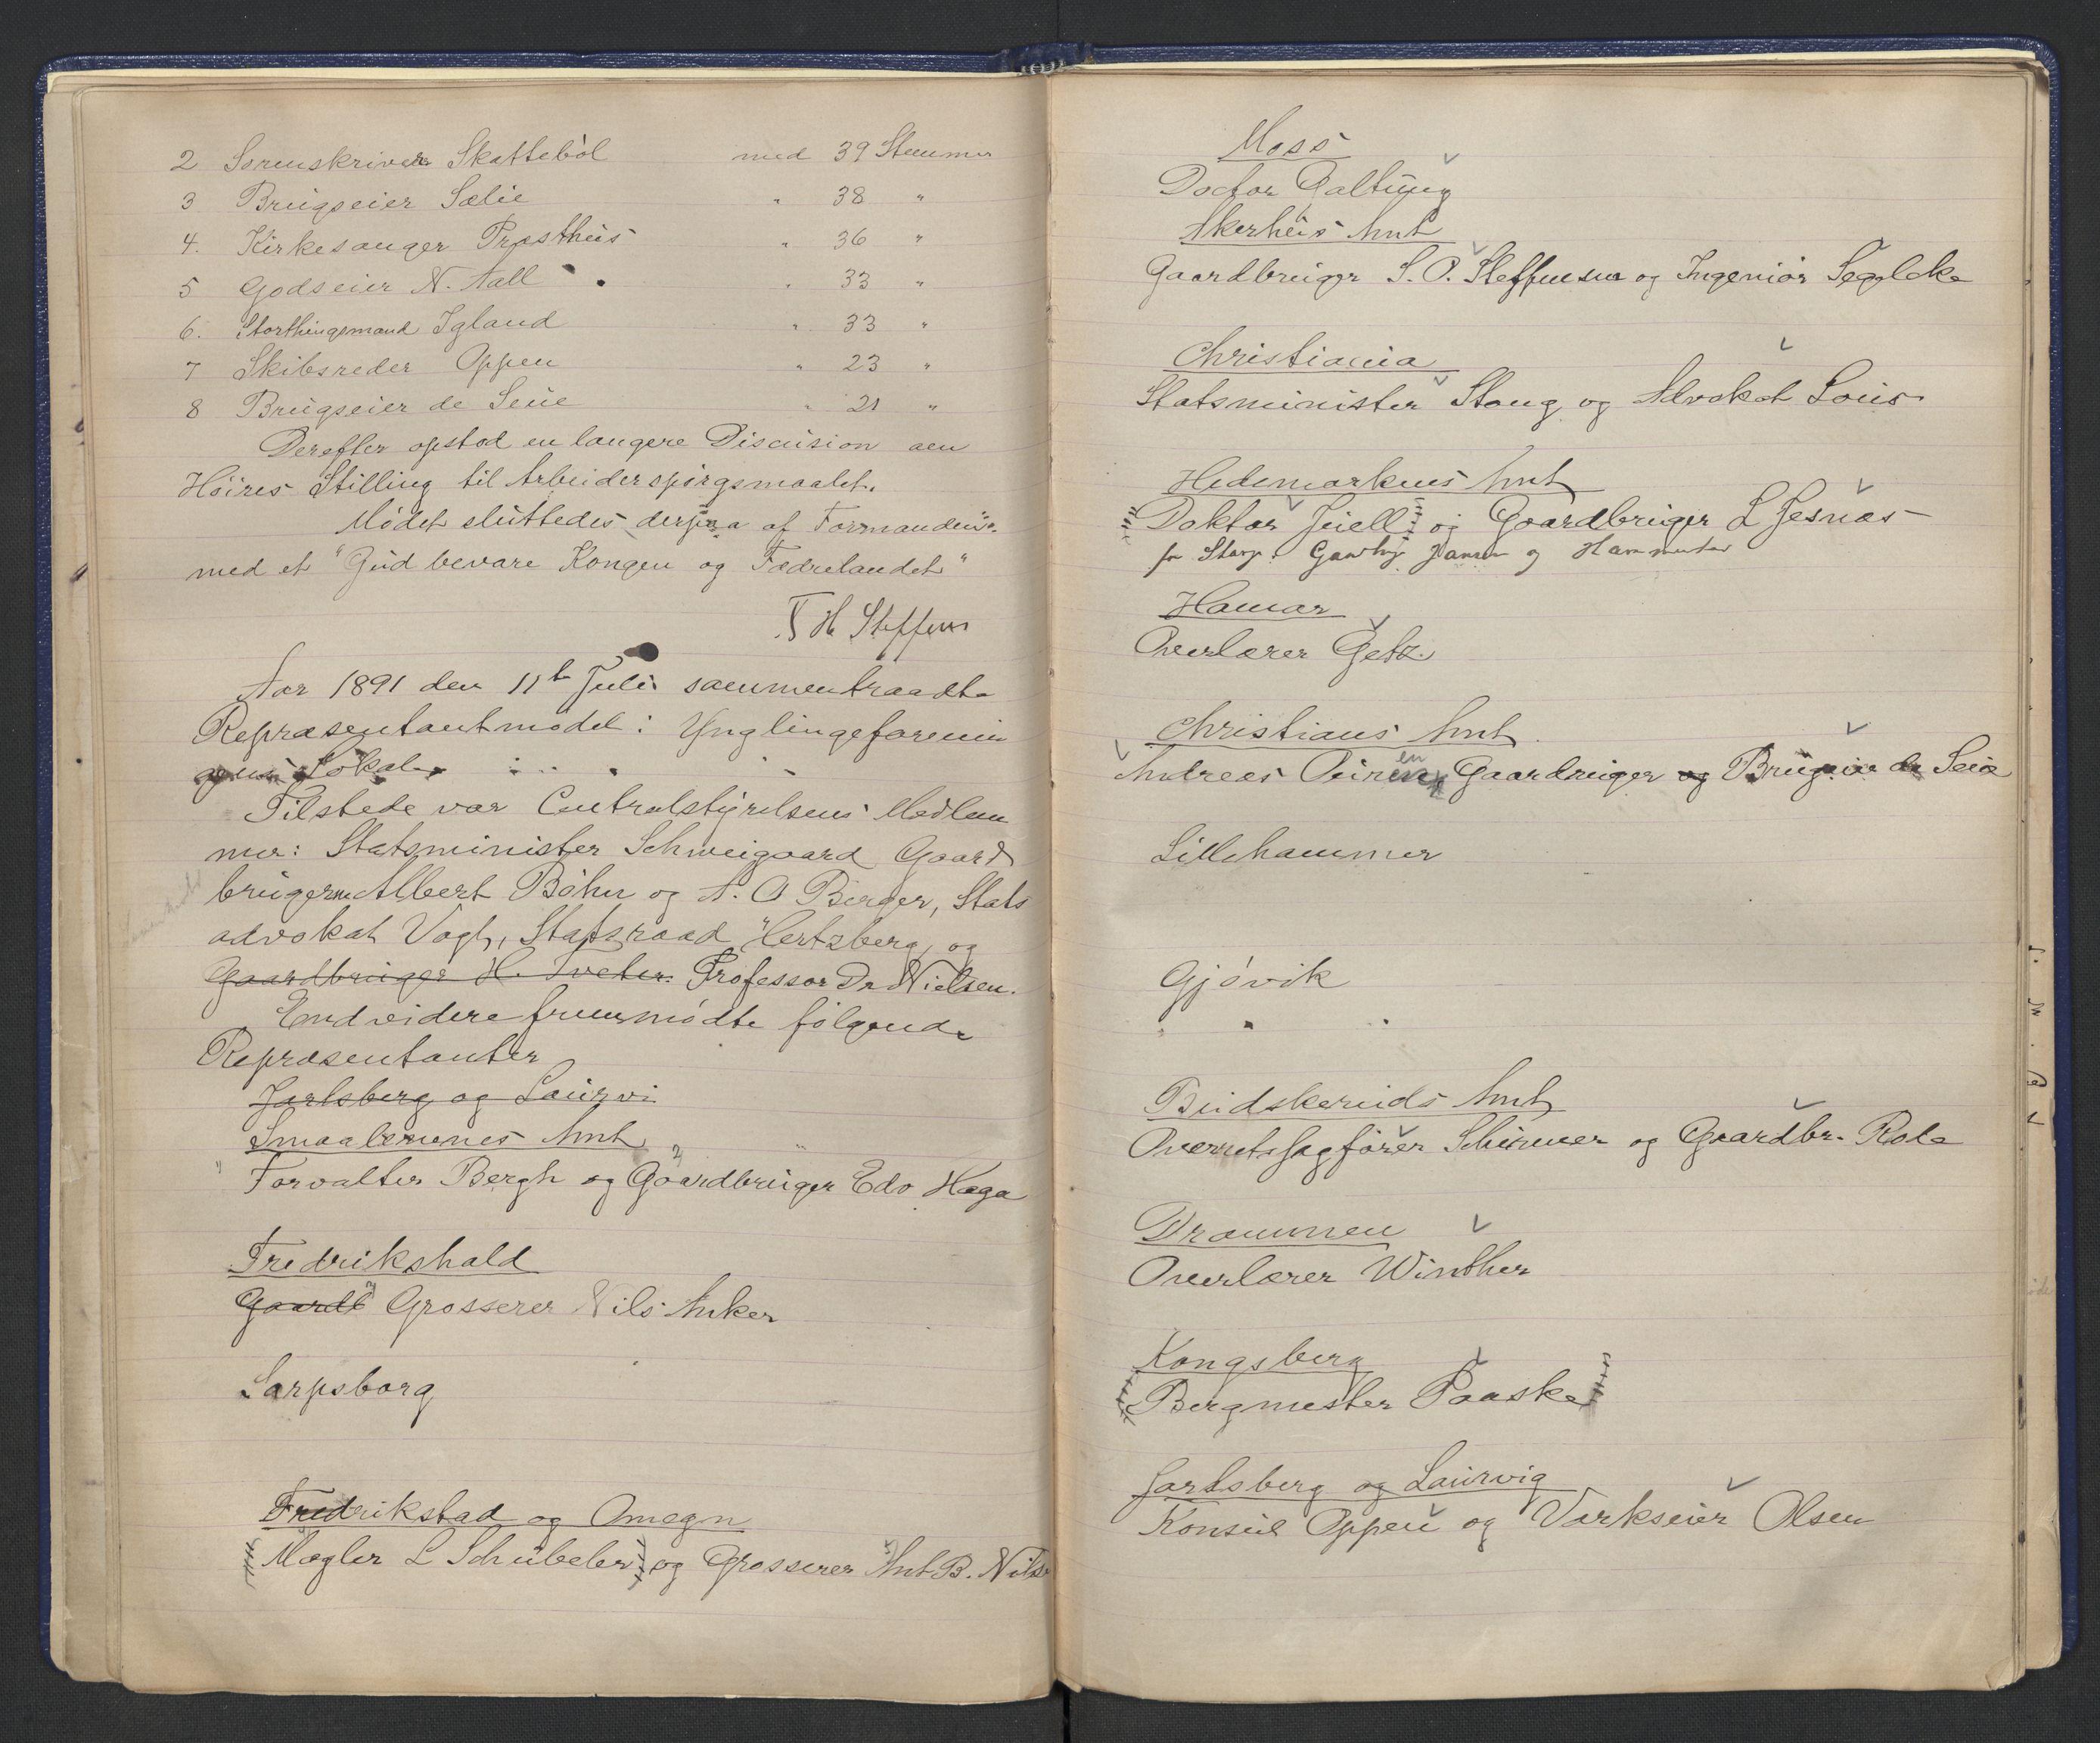 2 Sorenskriver Skattebøl med 39 Stemmer
3 Brugseier Sælie " 38 "
4. Kirkesanger Præsthus " 36 "
5 Godseier N. Aall " 33 "
6. Storthingsmand Igland " 33 "
7 Skibsreder Oppen " 23 "
8 Brugseier de Seue " 21 "
Derefter opstod en længere Discusion om
Høires Stilling til Arbeiderspørgsmaalet.
Mødet sluttedes derpaa af Formanden
med et "Gud bevare Kongen og Fædrelandet"
T H Steffens
Aar 1891 den 11te Juli sammentraadte
Repræsentantmødet i Ynglingeforenin
gens Lokale
Tilstede var Centralstyrelsens Medlem
mer: Statsminister Schweigaard Gaard
brugerne Albert Bøhn og A. O Berger, Stats
advokat Vogt, Statsraad Hertzberg, og
Gaardbruger H. Tveter. Professor Dr Nielsen.
Endvidere fremmødte følgende
Repræsentanter
Jarlsberg og Laurvi
Smaalenenes Amt
Forvalter Bergh og Gaardbruger Edv Haga
Fredrikshald
Gaardb Grosserer Nils Anker
Sarpsborg
Fredrikstad og Omegn
Mægler L Schübeler og Grosserer Ant B. Nils
Moss
Doctor Galtung
Akerhus Amt
Gaardbruger S. P. Steffensen og Ingeniør Segelcke
Christiania
Statsminister Stang og Advokat Lous
Hedemarkens Amt
Doktor Juell og Gaardbruger L Jesnæs
for Stange Gaardbr Jansen og
Hamar
Overlærer Getz.
Christians Amt
Andreas Owren Gaardbruger og Brugseier de Seue
Lillehammer
Gjøvik
Buskeruds Amt
Overretssagfører Schirmer og Gaardbr. Rolo
Drammen
Overlærer Winther
Kongsberg
Bergmester Paaske
Jarlsberg og Laurvig
Konsul Oppen og Værkseier Olsen